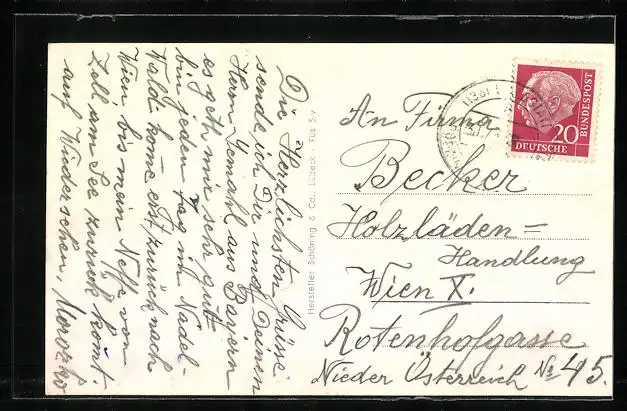 Die Herzlichsten Grüsse
sende ich Dir und Deinen
Herrn Gemahl aus Bayern
es geht mir sehr gutt
bin jeden Tag im Nadel-
Wald kome erst zurück nach
Wien bis mein Neffe von
Zell am See zurück komt.
auf Wiedersehen,
Hersteller Schöning & Co., Lübeck
An Firma
Becker
Holzläden=
Handlung
Wien X.
Rotenhofgasse
Nieder Österreich No 45.
20
DEUTSCHE
BUNDESPOST